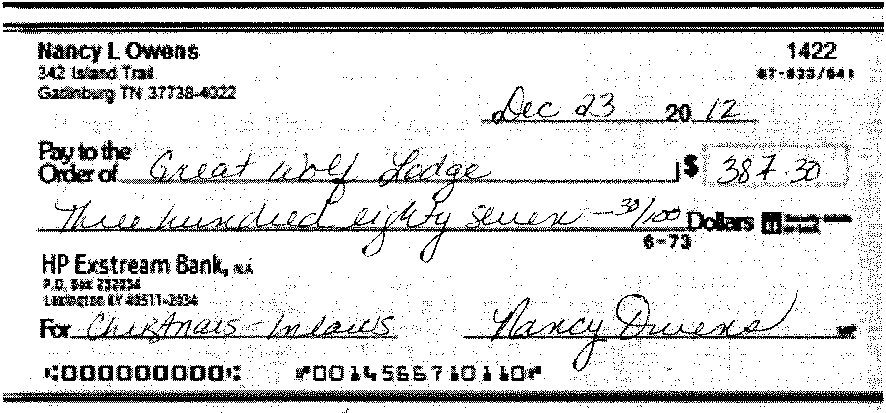 Nancy L Owens 1422
342 Island Trail 87-833/641
Gatlinburg TN 37738-4022
Dec 23 20 12
Pay to the
Order of Great Wolf Lodge $ 387.30
Three hundred eighty seven - 30/100 Dollars
6-73
HP Exstream Bank, N.A.
P.O. Box 232234
Lexington KY 40511-2034
For Christmas - Inlaws Nancy Owens MP
⑆000000000⑆ ⑈0014566710110⑈